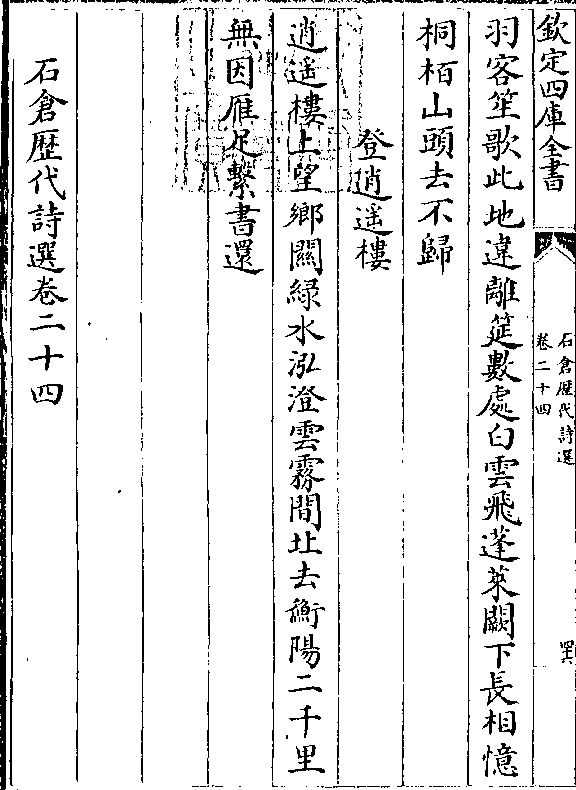 欽定四庫全書
石倉歴代詩選
卷二十四
羽客笙歌此地違離筵數處白雲飛蓬萊闕下長相憶
桐栢山頭去不歸
登逍遥樓
逍遥樓上望鄉關緑水泓澄雲霧間北去衡陽二千里
無因雁足繫書還
石倉歴代詩選卷二十四